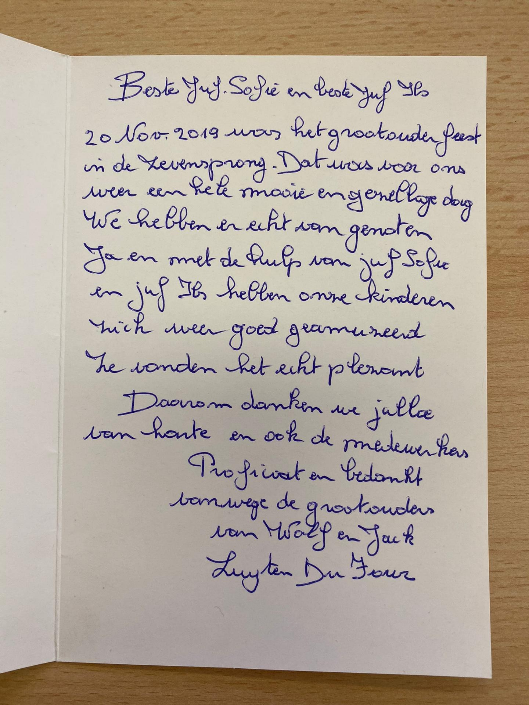 Beste Juf. Sofie en beste Juf Ils
20 Nov. 2019 was het grootouderfeest
in de Zevensprong. Dat was voor ons
weer een hele mooie en gezellige dag
We hebben er echt van genoten
Ja en met de hulp van juf Sofie
en juf Ils hebben onze kinderen
zich weer goed geamuzeerd
Ze vonden het echt plezant
Daarom danken we jullie
van harte en ook de medewerkers
Proficiat en bedankt
vanwege de grootouders
van Wolf en Jack
Luyten Du Four